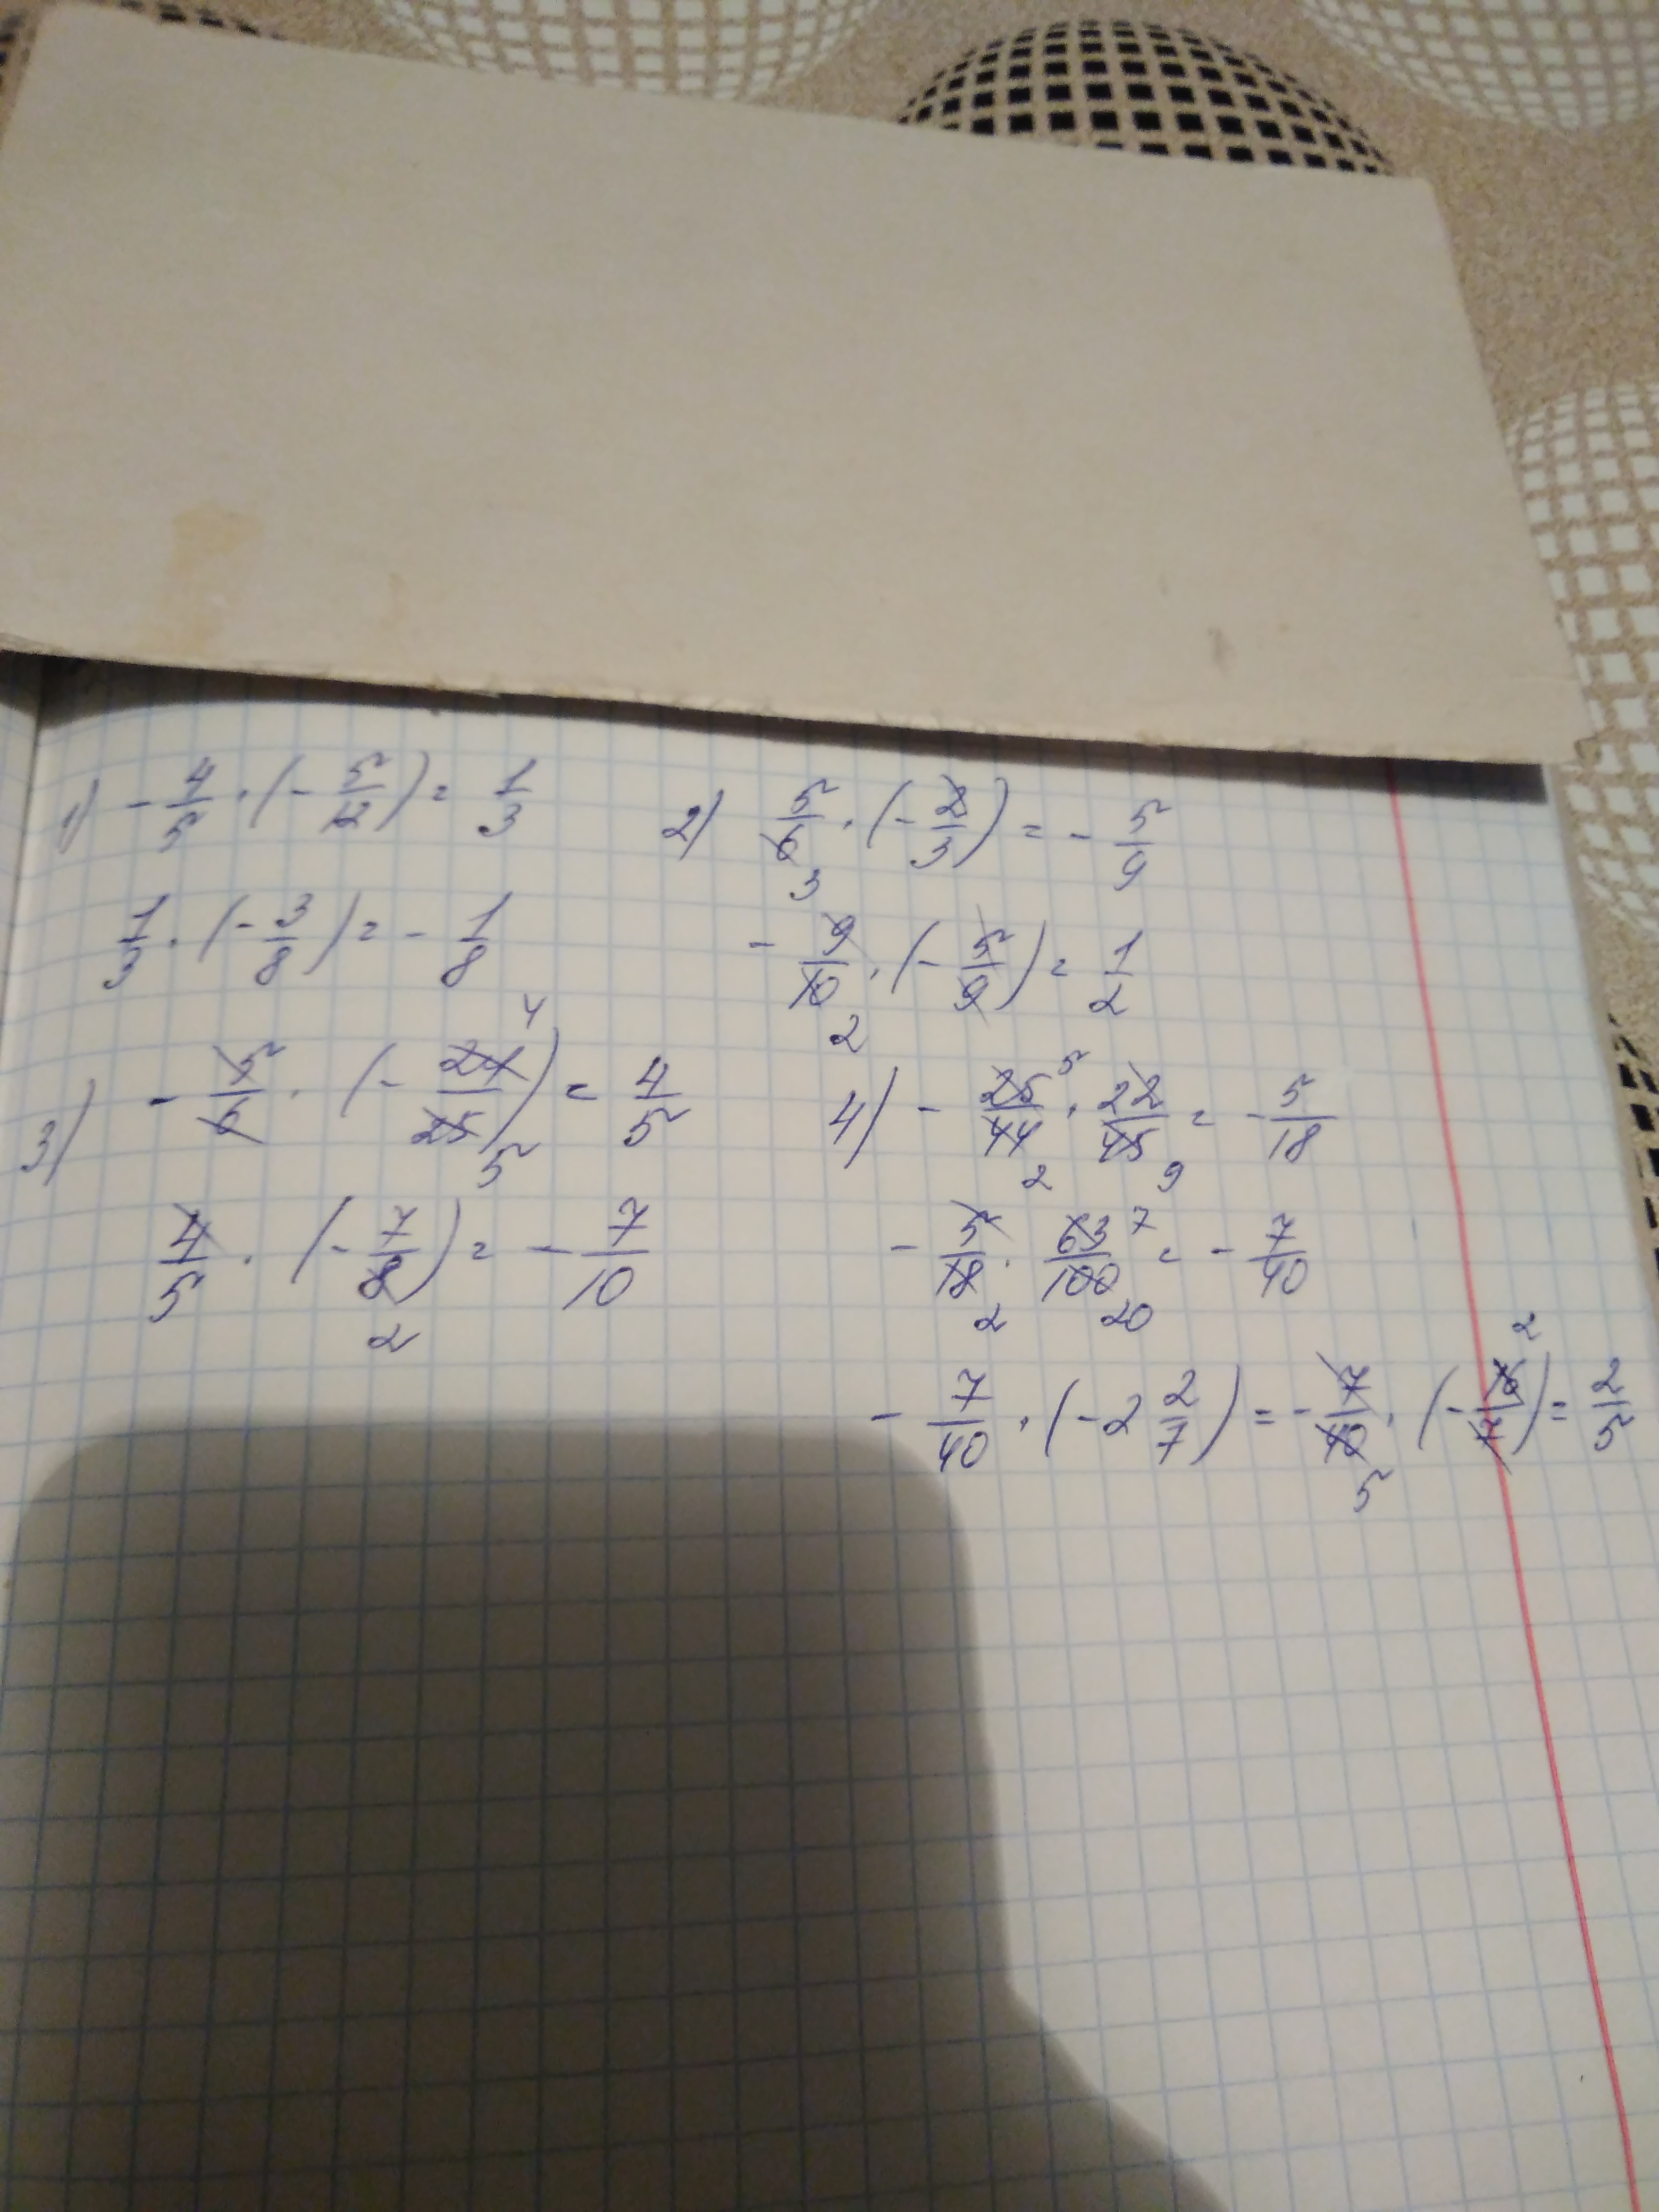 1) - 4/5 · (- 5/12) = 1/3
1/3 · (- 3/8) = - 1/8
2) 5/6 3 · (- 2/3) = - 5/9
- 9/10 2 · (- 5/9) = 1/2
3) - 5/6 · (- 24/25 4 5) = 4/5
4/5 · (- 7/8 2) = - 7/10
4) - 25/44 5 2 · 22/45 9 = - 5/18
- 5/18 2 · 63/100 7 20 = - 7/40
- 7/40 · (- 2 2/7) = - 7/40 5 · (- 16/7 2) = 2/5